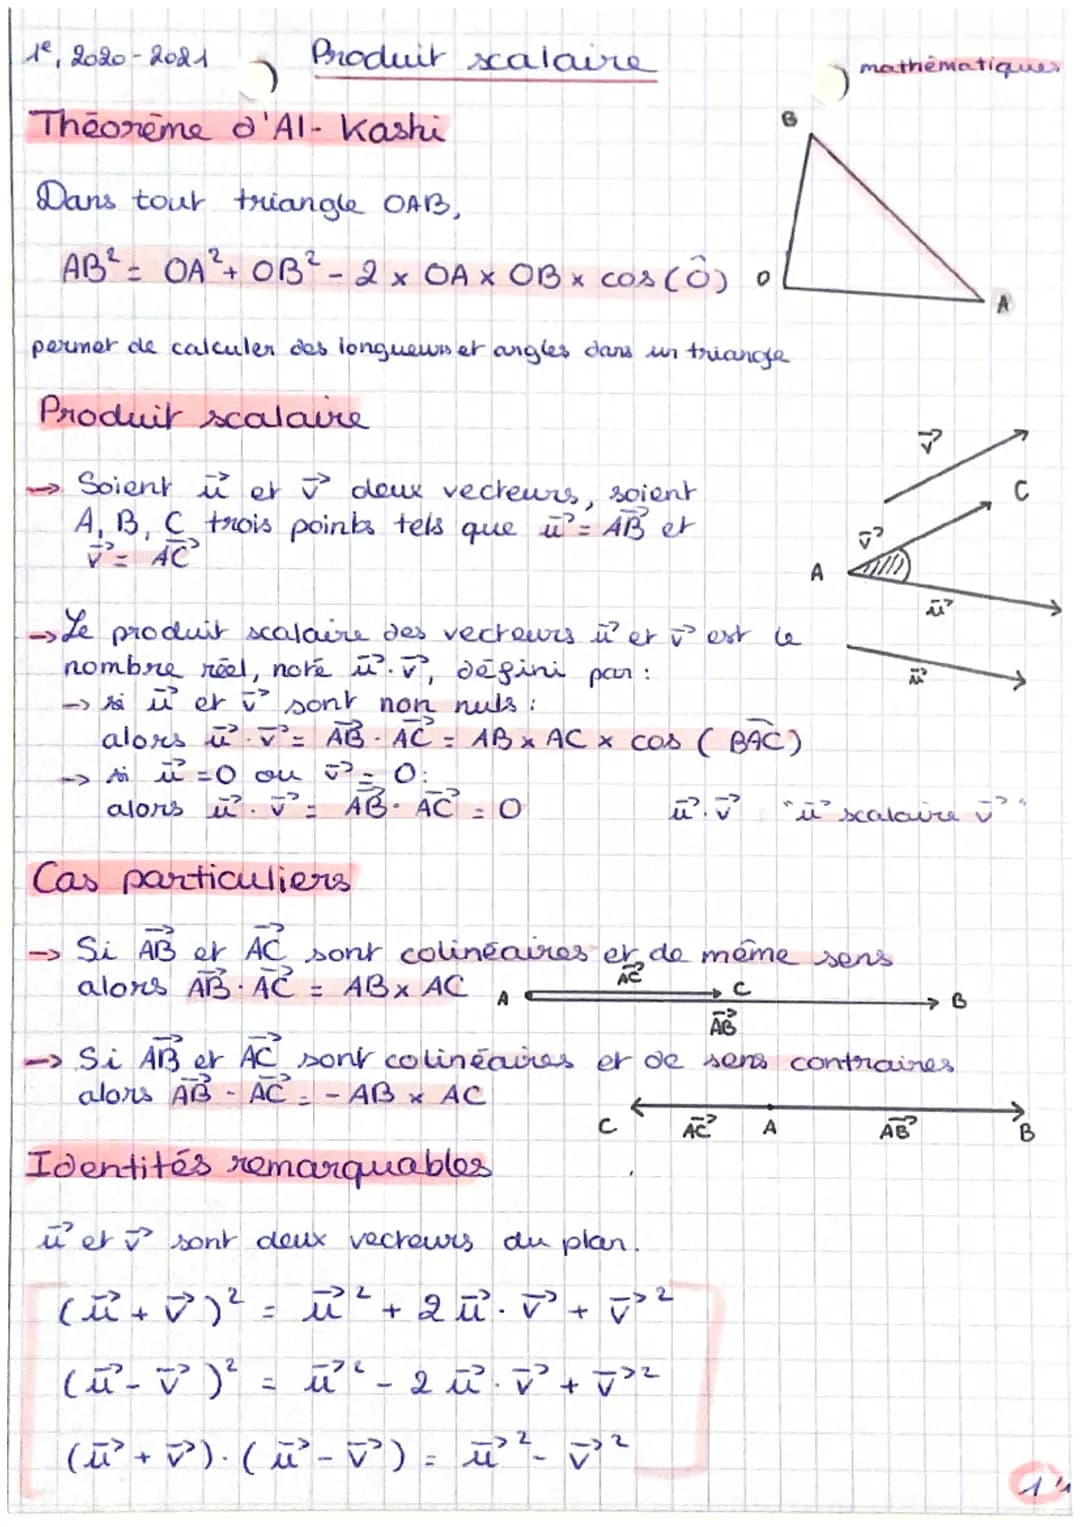 1e, 2020-2021
Produit scalaire
mathématiques
Théorème d'Al-Kashi
Dans tout triangle OAB,
AB² = OA² + OB² - 2 × OA × OB × cos(Ô)
B
O
A
permet de calculer des longueurs et angles dans un triangle
Produit scalaire
→ Soient u⃗ et v⃗ deux vecteurs, soient
A, B, C trois points tels que u⃗ = AB⃗ et
v⃗ = AC⃗
v⃗
C
v⃗
A
u⃗
u⃗
→ Le produit scalaire des vecteurs u⃗ et v⃗ est le
nombre réel, noté u⃗.v⃗, défini par :
→ si u⃗ et v⃗ sont non nuls :
alors u⃗.v⃗ = AB⃗.AC⃗ = AB × AC × cos (BAC)
→ si u⃗ = 0 ou v⃗ = 0:
alors u⃗.v⃗ = AB⃗.AC⃗ = 0
u⃗.v⃗ "u⃗ scalaire v⃗"
Cas particuliers
→ Si AB⃗ et AC⃗ sont colinéaires et de même sens
alors AB⃗.AC⃗ = AB × AC
A
AC⃗
C
B
AB⃗
→ Si AB⃗ et AC⃗ sont colinéaires et de sens contraires
alors AB⃗.AC⃗ = - AB × AC
C
AC⃗
A
AB⃗
B
Identités remarquables
u⃗ et v⃗ sont deux vecteurs du plan.
(u⃗ + v⃗)² = u⃗² + 2u⃗.v⃗ + v⃗²
(u⃗ - v⃗)² = u⃗² - 2u⃗.v⃗ + v⃗²
(u⃗ + v⃗).(u⃗ - v⃗) = u⃗² - v⃗²